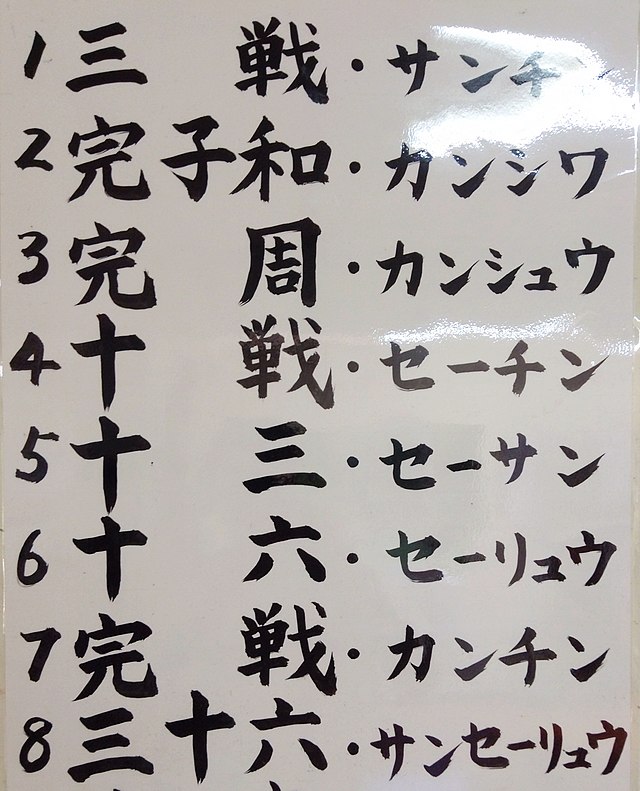 1 三 戦・サンチン
2 完子和・カンシワ
3 完 周・カンシュウ
4 十 戦・セーチン
5 十 三・セーサン
6 十 六・セーリュウ
7 完 戦・カンチン
8 三十六・サンセーリュウ